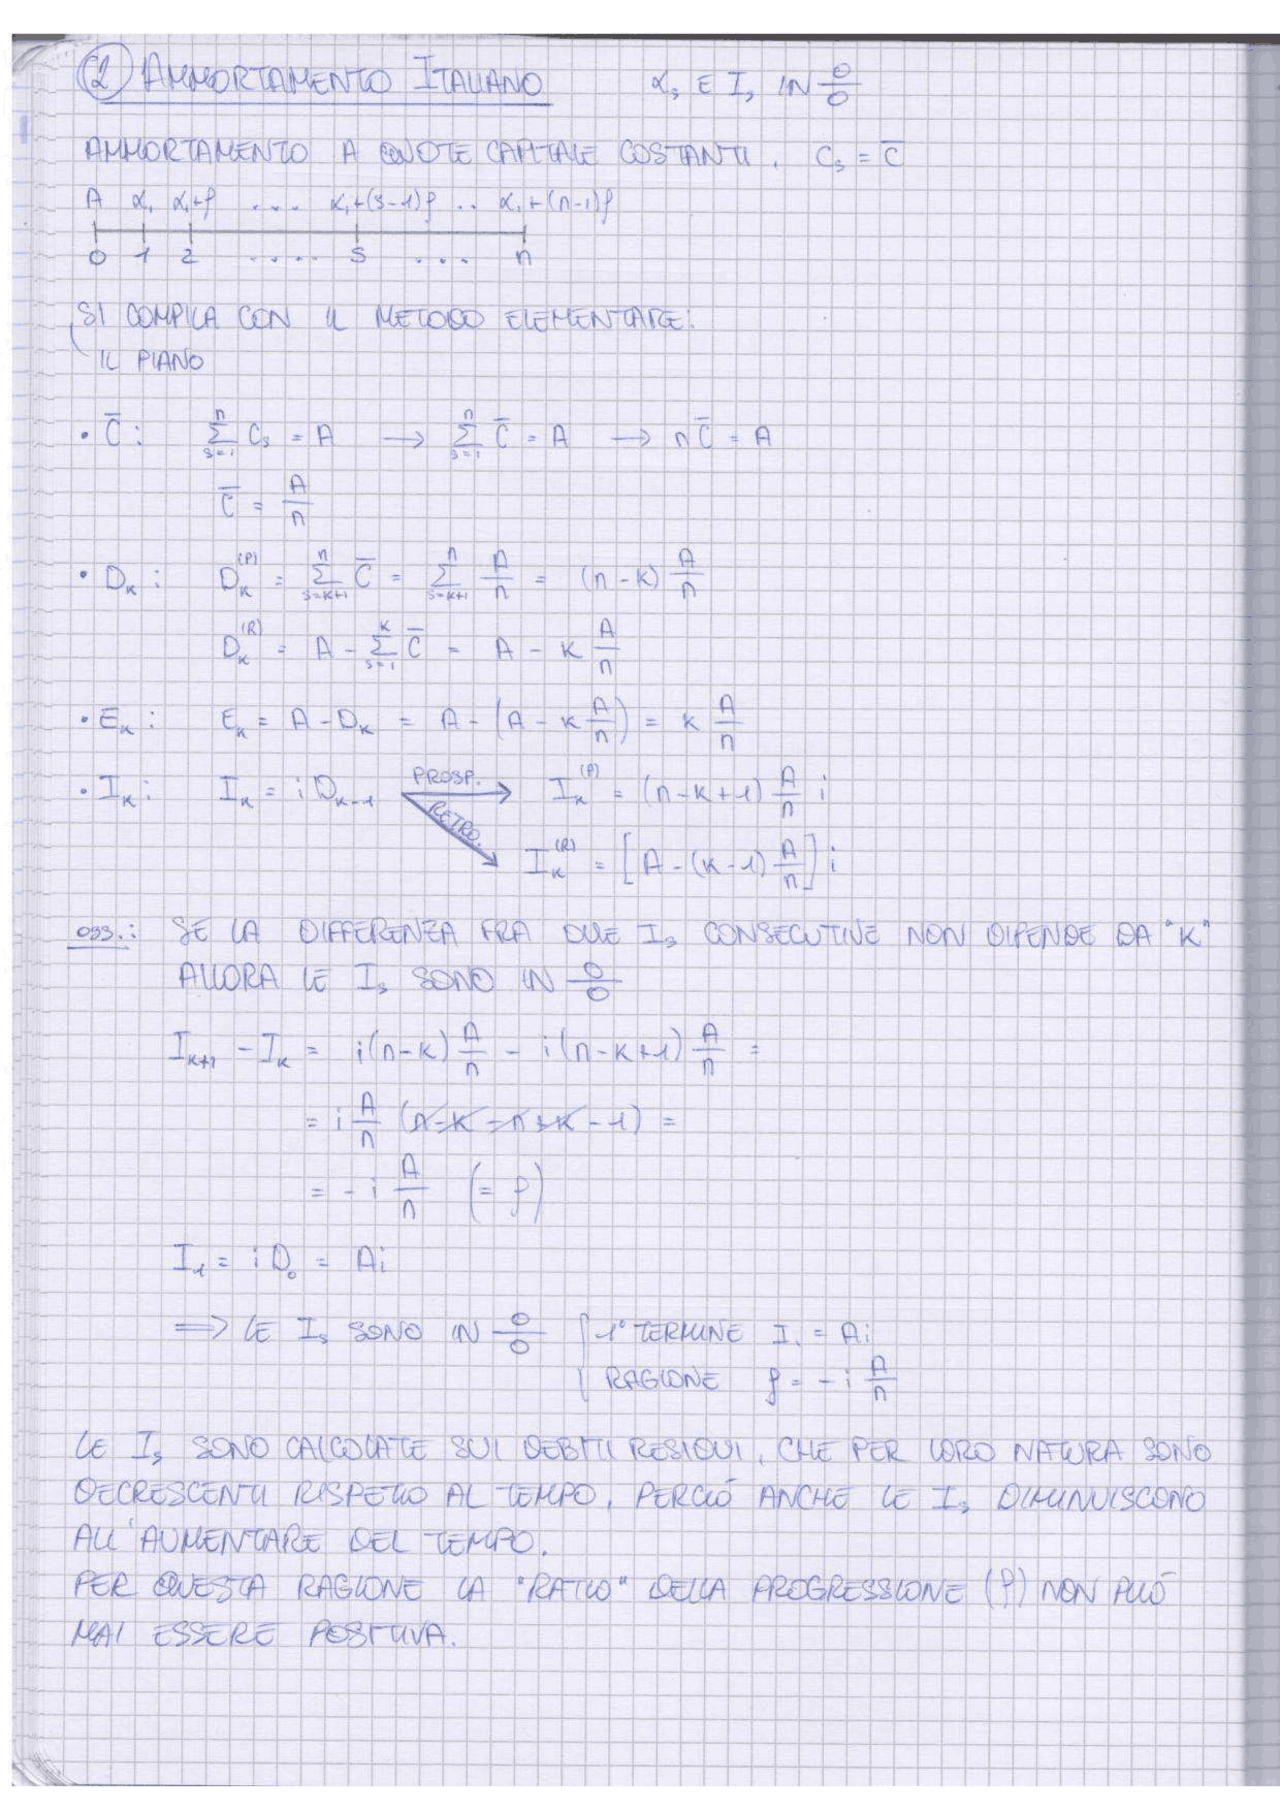 ② AMMORTAMENTO ITALIANO αₛ E Iₛ IN ÷
AMMORTAMENTO A QUOTE CAPITALE COSTANTI. Cₛ = C̄
A α₁ α₁+ρ .... α₁+(s-1)ρ .. α₁+(n-1)ρ
0 1 2 ..... s ... n
SI COMPILA CON IL METODO ELEMENTARE:
IL PIANO
• C̄: Σ_{s=1}^{n} Cₛ = A → Σ_{s=1}^{n} C̄ = A → nC̄ = A
C̄ = A/n
• D_K: D_K^{(P)} = Σ_{s=K+1}^{n} C̄ = Σ_{s=K+1}^{n} A/n = (n-K) A/n
D_K^{(R)} = A - Σ_{s=1}^{K} C̄ = A - K A/n
• E_K: E_K = A - D_K = A - (A - K A/n) = K A/n
• I_K: I_K = i D_{K-1} PROSP. I_K^{(P)} = (n-K+1) A/n i
RETRO. I_K^{(R)} = [A - (K-1) A/n] i
OSS.: SE LA DIFFERENZA FRA DUE Iₛ CONSECUTIVE NON DIPENDE DA "K"
ALLORA LE Iₛ SONO IN ÷
I_{K+1} - I_K = i(n-K) A/n - i(n-K+1) A/n =
= i A/n (n-K-n+K-1) =
= -i A/n (= ρ)
I₁ = i D₀ = Ai
⟹ LE Iₛ SONO IN ÷ { 1° TERMINE I₁ = Ai
RAGIONE ρ = -i A/n
LE Iₛ SONO CALCOLATE SUI DEBITI RESIDUI, CHE PER LORO NATURA SONO
DECRESCENTI RISPETTO AL TEMPO, PERCIÒ ANCHE LE Iₛ DIMINUISCONO
ALL'AUMENTARE DEL TEMPO.
PER QUESTA RAGIONE LA "RATIO" DELLA PROGRESSIONE (ρ) NON PUÒ
MAI ESSERE POSITIVA.